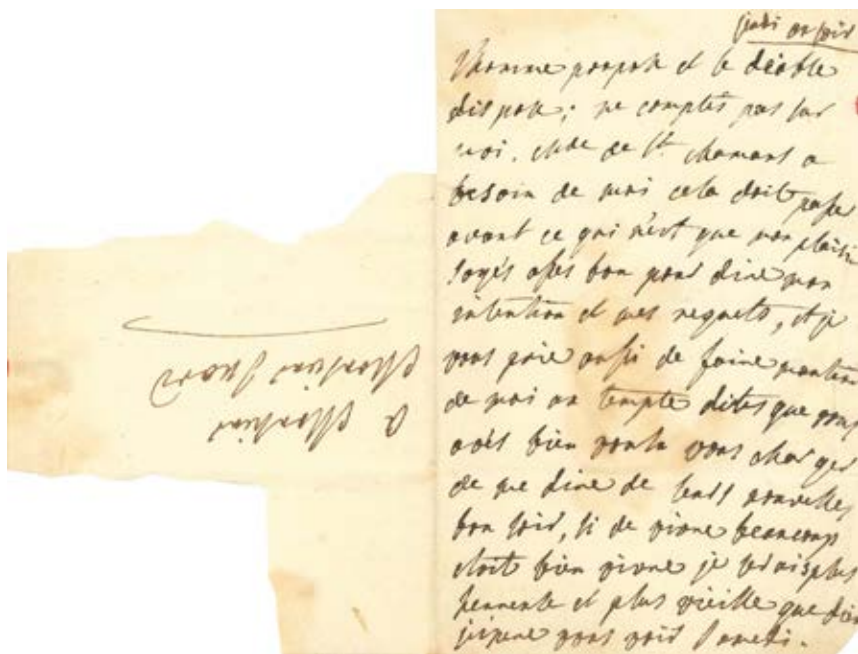 jeudi au soir
l'homme propose et le diable
dispose; ne comptés pas sur
moi. Mde de St. chamans a
besoin de moi cela doit passer
avant ce qui n'est que mon plaisir
soyés assés bon pour dire mon
intention et mes regrets, et je
vous prie aussi de faire mention
de moi au temple dites que vous
avés bien voulu vous charger
de me dire de leurs nouvelles
bon soir, si de vivre beaucoup
etoit bien vivre je serois plus
et plus vieille que
j'espere vous voir samedi.
a Monsieur
Monsieur Suard